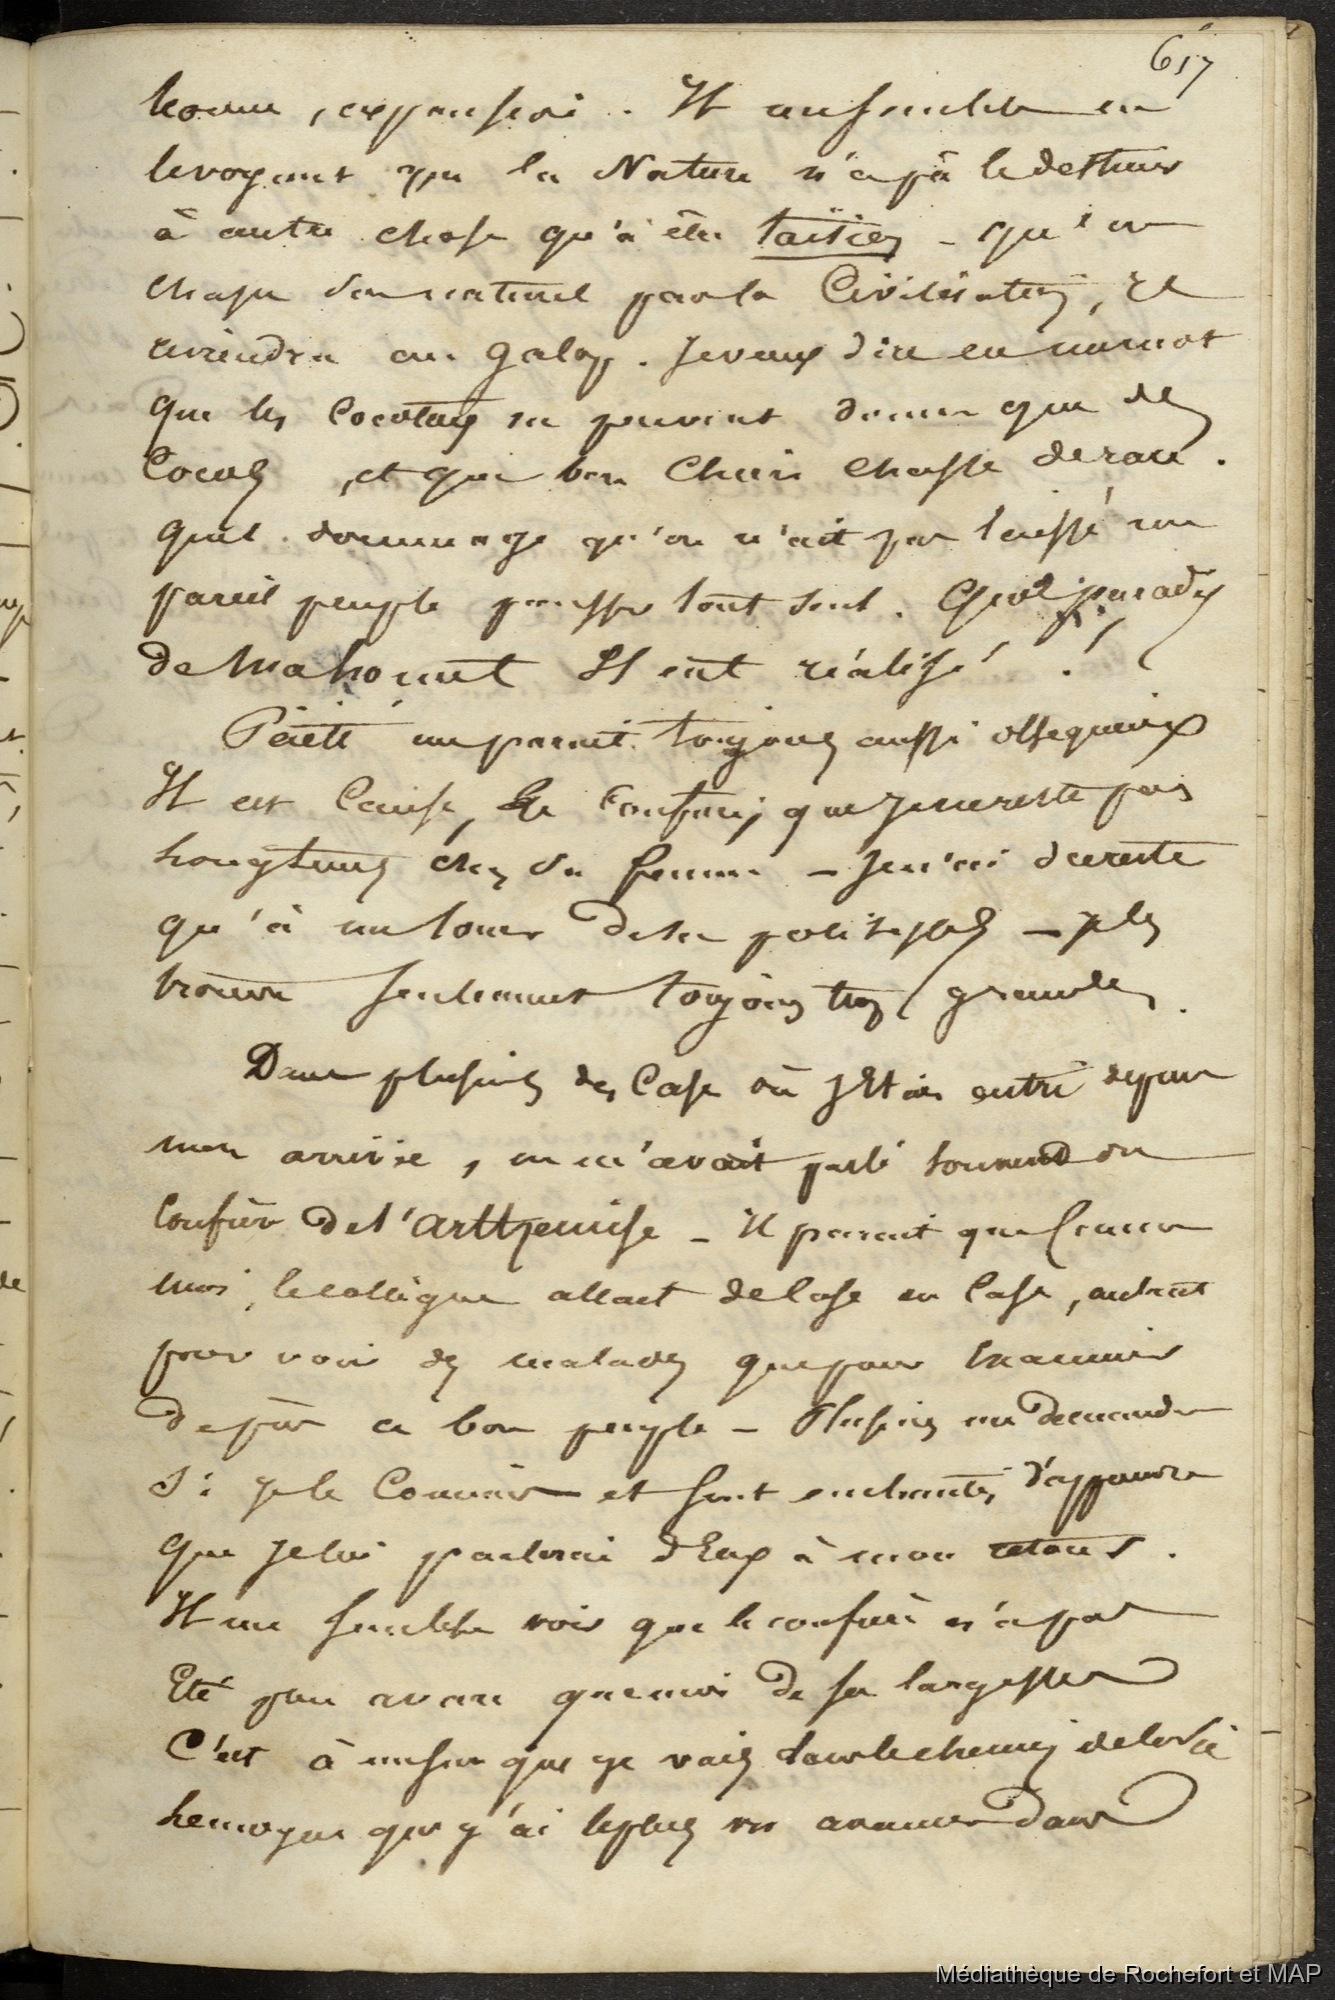 617
bonne, expansive. Il me semble en
le voyant que la Nature n'a pu le destiner
à autre chose qu'à être taïtien - qu'on
chasse son naturel par la Civilisation, il
reviendra au galop. Je veux dire en un mot
que les Cocotiers ne peuvent donner que des
Cocos, et que bon Chien chasse de race.
quel dommage qu'on n'ait pas laissé un
pareil peuple pousser tout seul. Quel paradis
de Mahomet Il eut réalisé !
me parait toujours aussi obséquieux
Il est cause, que je ne reste pas
longtems chez sa femme - Je n'ai du reste
qu'à me louer de sa politesse - je les
trouve seulement toujours trop grandes.
Dans plusieurs des Case où J'étais entré depuis
mon arrivée, on m'avait parlé souvent du
Confrère de l'arthémise - il parait que comme
moi, le collègue allait de Case en Case, autant
pour voir des malades que pour examiner
de près ce bon peuple - Plusieurs me demandent
Si je le Connais et sont enchantés d'apprendre
que Je lui parlerai d'Eux à mon retour.
Il me semble voir que le confrère n'a pas
Eté plus avare que moi de ses largesses
C'est à mesure que je vais dans le chemin de
le moyen que j'ai le plus vu avancer dans